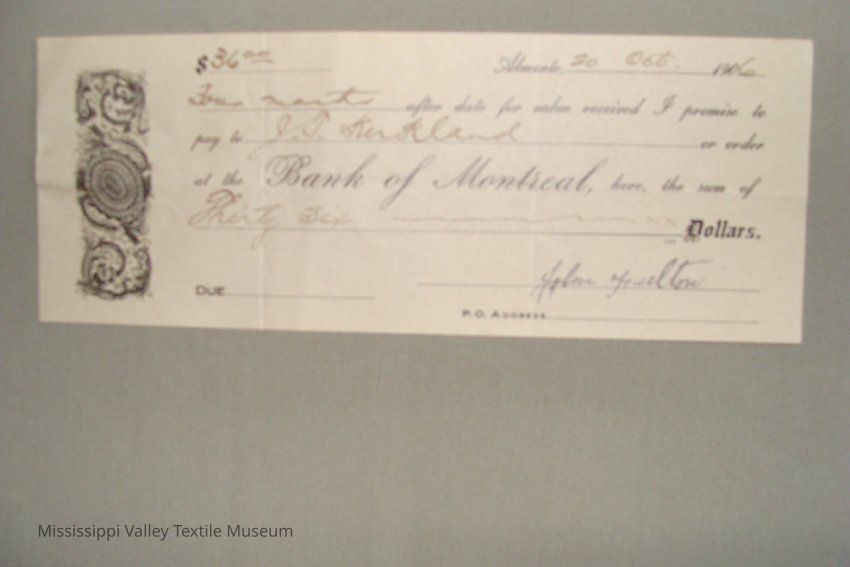 $36 00 Almonte, 20 Oct. 1906
Four months after date for value received I promise to
pay to J. T. Kirkland or order
at the Bank of Montreal, here, the sum of
Thirty Six xx Dollars.
John Fulton
DUE
P.O. ADDRESS
Mississippi Valley Textile Museum